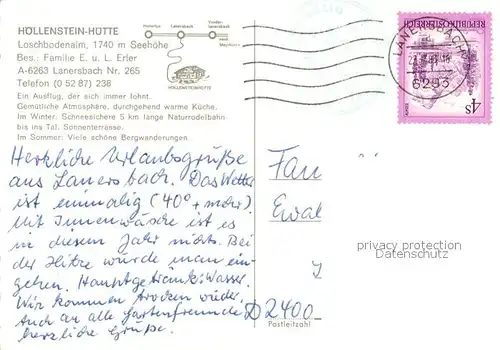 HÖLLENSTEIN-HÜTTE
Loschbodenalm, 1740 m Seehöhe
Bes.: Familie E. u. L. Erler
A-6263 Lanersbach Nr. 265
Telefon (0 52 87) 238
Ein Ausflug, der sich immer lohnt.
Gemütliche Atmosphäre, durchgehend warme Küche.
Im Winter: Schneesichere 5 km lange Naturrodelbahn
bis ins Tal. Sonnenterrasse.
Im Sommer: Viele schöne Bergwanderungen.
Hintertux
Lanersbach
Vorder-
lanersbach
nach
Mayrhofen
HÖLLENSTEINHÜTTE
REPUBLIK ÖSTERREICH
4S
LANERSBACH
6293
Herzliche Urlaubsgrüße
aus Lanersbach. Das Wetter
ist einmalig (40° + mehr).
Mit Innenwäsche ist es
in diesem Jahr nichts. Bei
der Hitze würde man ein-
gehen. Hauptgetränk: Wasser.
Wir kommen trocken wieder.
Auch an alle Gartenfreunde
herzliche Grüße.
Ewal
D 2400
Postleitzahl
privacy protection
Datenschutz